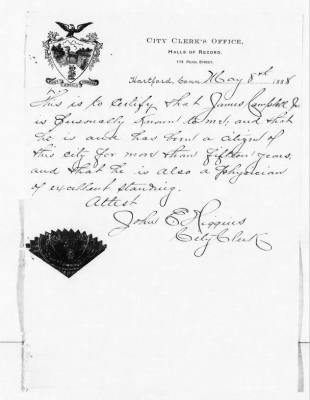 CITY CLERK'S OFFICE,
HALLS OF RECORD,
114 PEARL STREET.
Hartford, Conn. May 8th 1888
This is to certify that James Campbell Jr
is personally known to me, and that
he is and has been a citizen of
this city for more than fifteen years,
and that he is also a physician
of excellent standing.
Attest
John E. Higgins
City Clerk